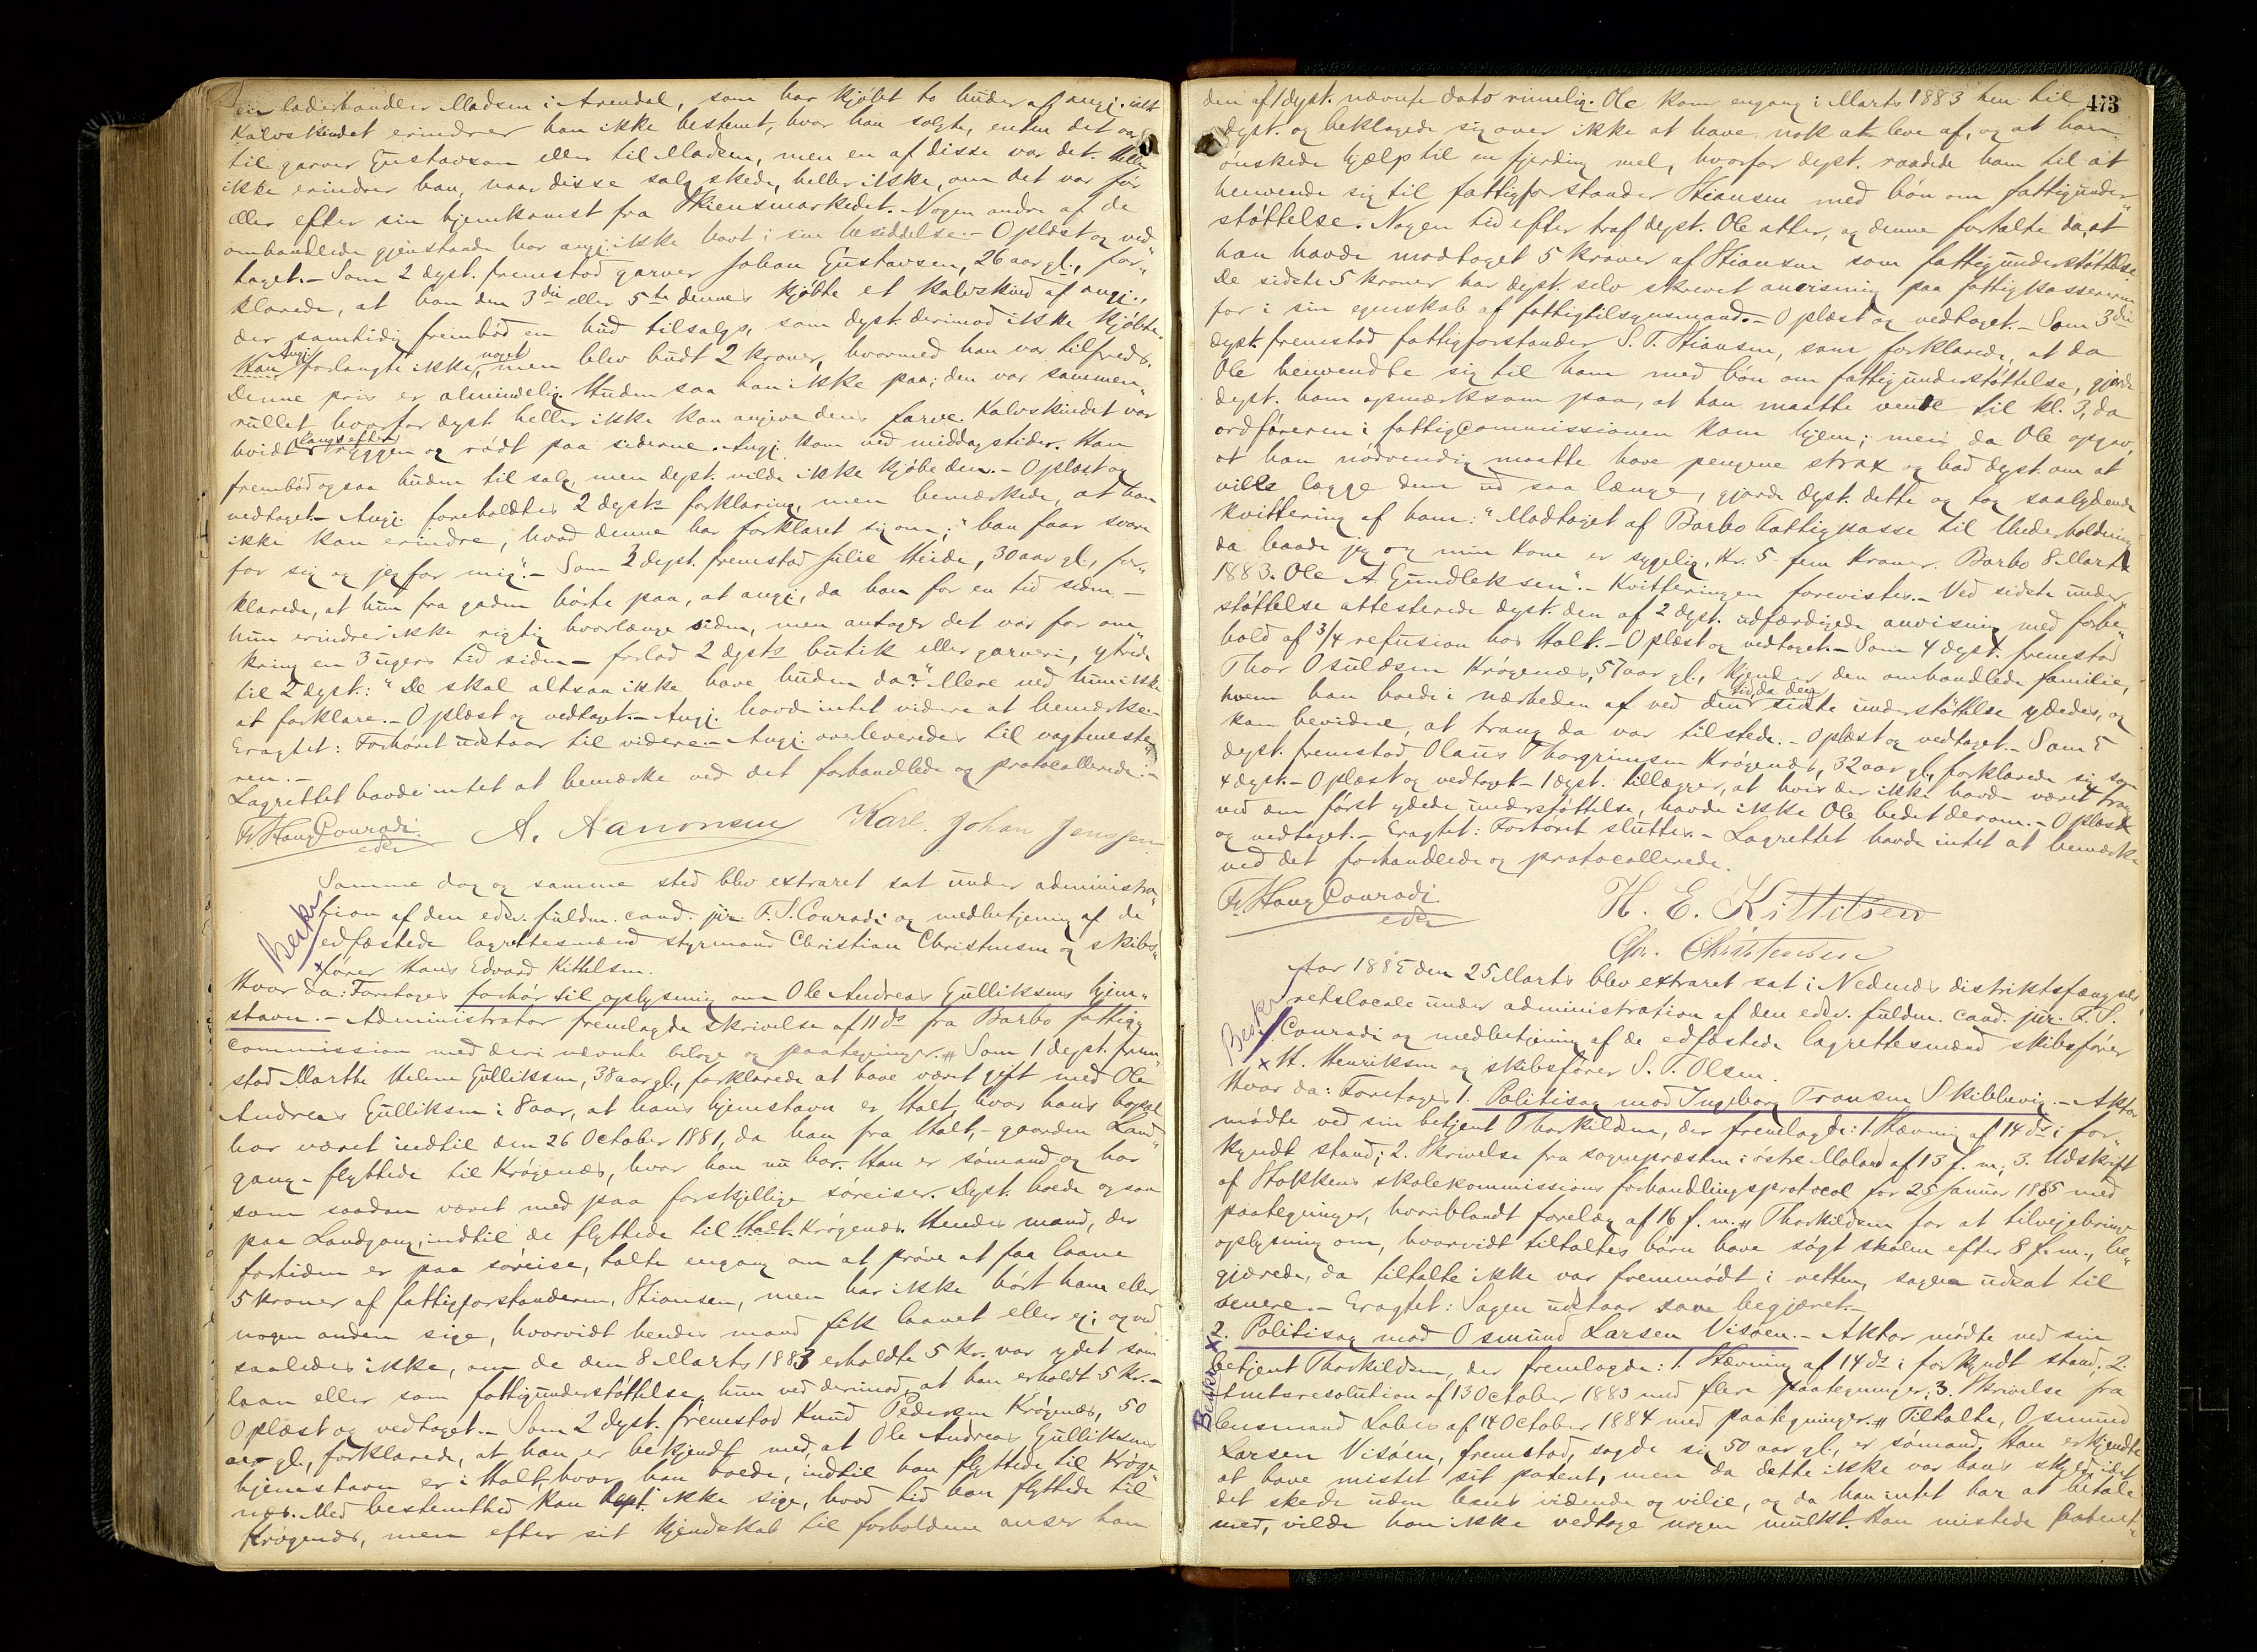 en læderhandler Madsen i Arendal, som har kjøbt to huder af angj. idet
Kalvskindet erindrer han ikke bestemt, hvor han solgte, enten det var
til garver Gustavson eller til Madsen, men en af disse var det. Heller
ikke erindrer han, naar disse salg skede, heller ikke, om det var før
eller efter sin hjemkomst fra Skiensmarkedet. Nogen andre af de
omhandlede gjenstande har angj. ikke havt i sin besiddelse. - Oplæst og ved-
taget. - Som 2 dept. fremstod garver Johan Gustavsen, 26 aar gl., for-
klarede, at han den 3die eller 5te dennes kjøbte et kalvskind af angj.,
der samtidig frembød en hud tilsalgs, som dept. derimod ikke kjøbte.
Han Angj. forlangte ikke noget, men blev budt 2 kroner, hvormed han var tilfreds.
Denne pris er almindelig. Huden saa han ikke paa; den var sammen-
rullet, hvorfor dept. heller ikke kan angive dens farve. Kalvskindet var
hvidt langsefter ryggen og rødt paa siderne. Angj. kom ved middagstider. Han
frembød ogsaa huden til salg, men dept. vilde ikke kjøbe den. - Oplæst og
vedtaget. - Angj. foreholdtes 2 depts forklaring, men bemærkede, at han
ikke kan erindre, hvad denne har forklaret sig om; "han faar svare
for sig og jeg for mig". - Som 3 dept. fremstod Julie Heide, 30 aar gl., for-
klarede, at hun fra gaden hørte paa, at angj., da han for en tid siden -
hun erindrer ikke rigtig hvorlænge siden, men antager det var for om
kring en 3 ugers tid siden - forlod 2 depts butik eller garveri, ytrede
til 2 dept.: "De skal altsaa ikke have huden da?" Mere ved hun ikke
at forklare. - Oplæst og vedtaget. - Angj. havde intet videre at bemærke. -
Eragtet: Forhøret udstaar til videre. - Angj. overleveredes til vagtmeste-
ren. -
Lagrettet havde intet at bemærke ved det forhandlede og protocollerede. -
Fr. Hang Conradi
edsv
A. Aanonsen
Karl Johan Jensen
Samme dag og samme sted blev extraret sat under administra-
tion af den edsv. fuldm. cand. jur. F. S. Conradi og medbetjening af de
edfæstede lagrettesmænd styrmand Christian Christensen og skibs-
fører Hans Edvard Kittelsen.
Hvor da: Foretoges forhør til oplysning om Ole Andreas Gulliksens hjem-
stavn. - Administrator fremlagde skrivelse af 11 ds fra Barbo fattig-
commission med deri nævnte bilage og paategninger. # Som 1 dept. frem-
stod Marthe Helene Gulliksen, 38 aar gl., forklarede at have været gift med Ole
Andreas Gulliksen i 8 aar, at hans hjemstavn er Holt, hvor hans bopæl
har været indtil den 26 October 1881, da han fra Holt, - gaarden Land-
gang - flyttede til Krøgenæs, hvor han nu bor. Han er sømand og har
som saadan været med paa forskjellige søreiser. Dept. boede ogsaa
paa Landgang, indtil de flyttede til Holt Krøgenæs. Hendes mand, der
fortiden er paa søreise, talte engang om at prøve at faa laane
5 kroner af fattigforstanderen, Stiansen, men har ikke hørt ham eller
nogen anden sige, hvorvidt hendes mand fik laanet eller ej; og ved
saaledes ikke, om de den 8 Marts 1883 erholdte 5 kr. var ydet som
laan eller som fattigunderstøttelse, hun ved derimod, at han erholdt 5 kr. -
Oplæst og vedtaget. - Som 2 dept. fremstod Knud Pedersen Krøgenæs, 50
aar gl., forklarede, at han er bekjendt med, at Ole Andreas Gulliksens
hjemstavn er i Holt, hvor han boede, indtil han flyttede til Krøge-
næs. Med bestemthed kan dept. ikke sige, hvad tid han flyttede til
Krøgenæs, men efter sit kjendskab til forholdene anser han
Besk.
473
den af 1 dept. nævnte dato rimelig. Ole kom engang i Marts 1883 hen til
dept. og beklagede sig over ikke at have nok at leve af, og at han
ønskede hjælp til en fjerding mel, hvorfor dept. raadede ham til at
henvende sig til fattigforstander Stiansen med bøn om fattigunder-
støttelse. Nogen tid efter traf dept. Ole atter, og denne fortalte da, at
han havde modtaget 5 kroner af Stiansen som fattigunderstøttelse.
De sidste 5 kroner har dept. selv skrevet anvisning paa fattigkassereren
for i sin egenskab af fattigtilsynsmand. - Oplæst og vedtaget. - Som 3die
dept. fremstod fattigforstander S. T. Stiansen, som forklarede, at da
Ole henvendte sig til ham med bøn om fattigunderstøttelse, gjorde
dept. ham opmærksom paa, at han maatte vente til kl. 3, da
ordføreren i fattigcommissionen kom hjem; men da Ole opgav,
at han nødvendig maatte have pengene strax og bad dept. om at
ville lægge dem ud saa længe, gjorde dept. dette og tog saalydende
kvittering af ham: "Modtaget af Barbo Fattigkasse til Underholdning
da baade jeg og min Kone er sygelig, Kr. 5 fem Kroner. Barbo 8 Marts
1883. Ole A Gundleksen". - Kvitteringen forevistes. - Ved sidste under-
støttelse attesterede dept. den af 2 dept. udfærdigede anvisning med forbe-
hold af 3/4 refusion hos Holt. - Oplæst og vedtaget. - Som 4 dept. fremstod
Thor Osuldsen Krøgenæs, 57 aar gl., kjender den omhandlede familie,
hvem han boede i nærheden af ved den tid, da den sidste understøttelse ydedes, og
kan bevidne, at trang da var tilstede. - Oplæst og vedtaget. - Som 5
dept. fremstod Olaus Thorgrimsen Krøgenæs, 32 aar gl., forklarede sig som
4 dept. - Oplæst og vedtaget. - 1 dept. tillægger, at hvis der ikke havde været trang
ved den først ydede understøttelse, havde ikke Ole bedet derom. - Oplæst
og vedtaget. - Eragtet: Forhøret sluttes. - Lagrettet havde intet at bemærke
ved det forhandlede og protocollerede.
Fr. Hang Conradi
edsv
H. E. Kittilsen
Chr. Christensen
Aar 1885 den 25 Marts blev extraret sat i Nedenæs distriktsfængsels
retslocale under administration af den edsv. fuldm. cand. jur. F. S.
Conradi og medbetjening af de edfæstede lagrettesmænd skibsfører
H. Henriksen og skibsfører S. T. Olsen.
Hvor da: Foretoges 1. Politisag mod Ingeborg Fransen Skibbevig. - Aktor
mødte ved sin betjent Thorkildsen, der fremlagde: 1. Stævning af 14 ds i for-
kyndt stand; 2. Skrivelse fra sognepræsten i østre Moland af 13 f. m.; 3. Udskrift
af Stokkens skolekommissions forhandlingsprotocol for 25 Januar 1885 med
paategninger, hvoriblandt forelæg af 16 f. m. # Thorkildsen for at tilvejebringe
oplysning om, hvorvidt tiltaltes børn have søgt skolen efter 8 f. m., be-
gjærede, da tiltalte ikke var fremmødt i retten, sagen udsat til
senere. - Eragtet: Sagen udstaar som begjæret. -
2. Politisag mod Osmund Larsen Visøen. - Aktor mødte ved sin
betjent Thorkildsen, der fremlagde: 1. Stævning af 14 ds i forkyndt stand; 2.
Amtsresolution af 13 October 1883 med flere paategninger; 3. Skrivelse fra
lensmand Løbes af 14 October 1884 med paategninger. # Tiltalte, Osmund
Larsen Visøen, fremstod, sagde sig 50 aar gl., er sømand. Han erkjendte
at have mistet sit patent, men da dette ikke var hans skyld, idet
det skede uden hans vidende og vilie, og da han intet har at betale
med, vilde han ikke vedtage nogen mulkt. Han mistede patent-
Besk.
Besk.